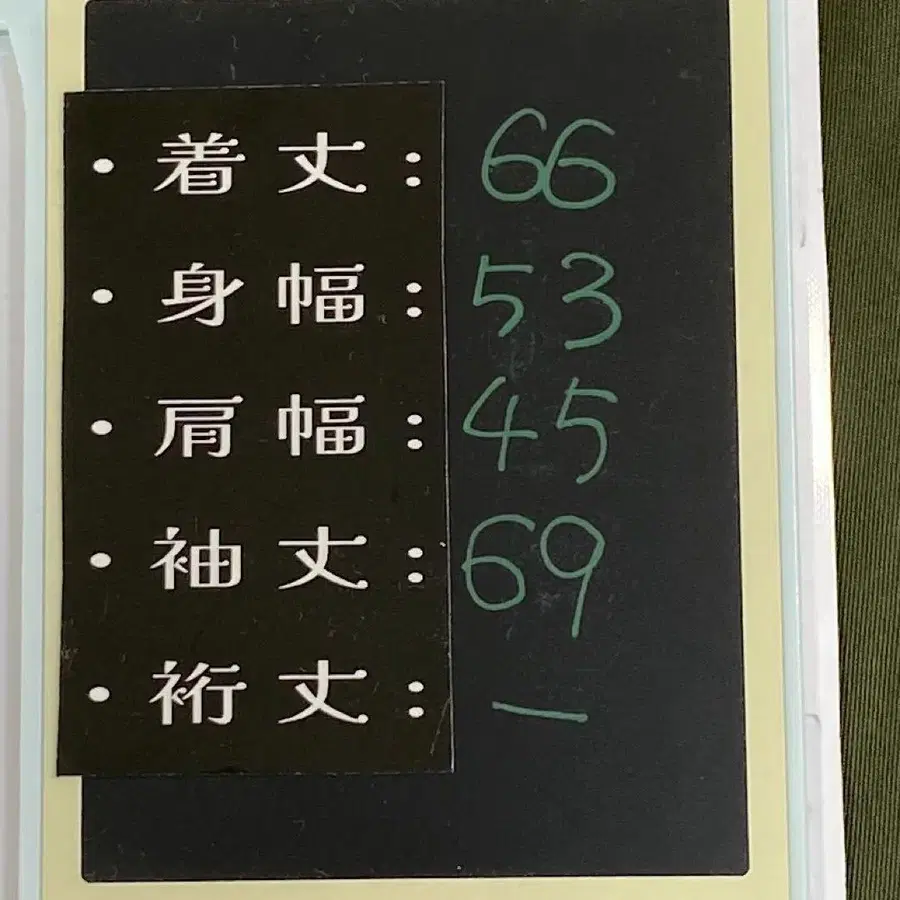 ・着丈: 66
・身幅: 53
・肩幅: 45
・袖丈: 69
・裄丈: —